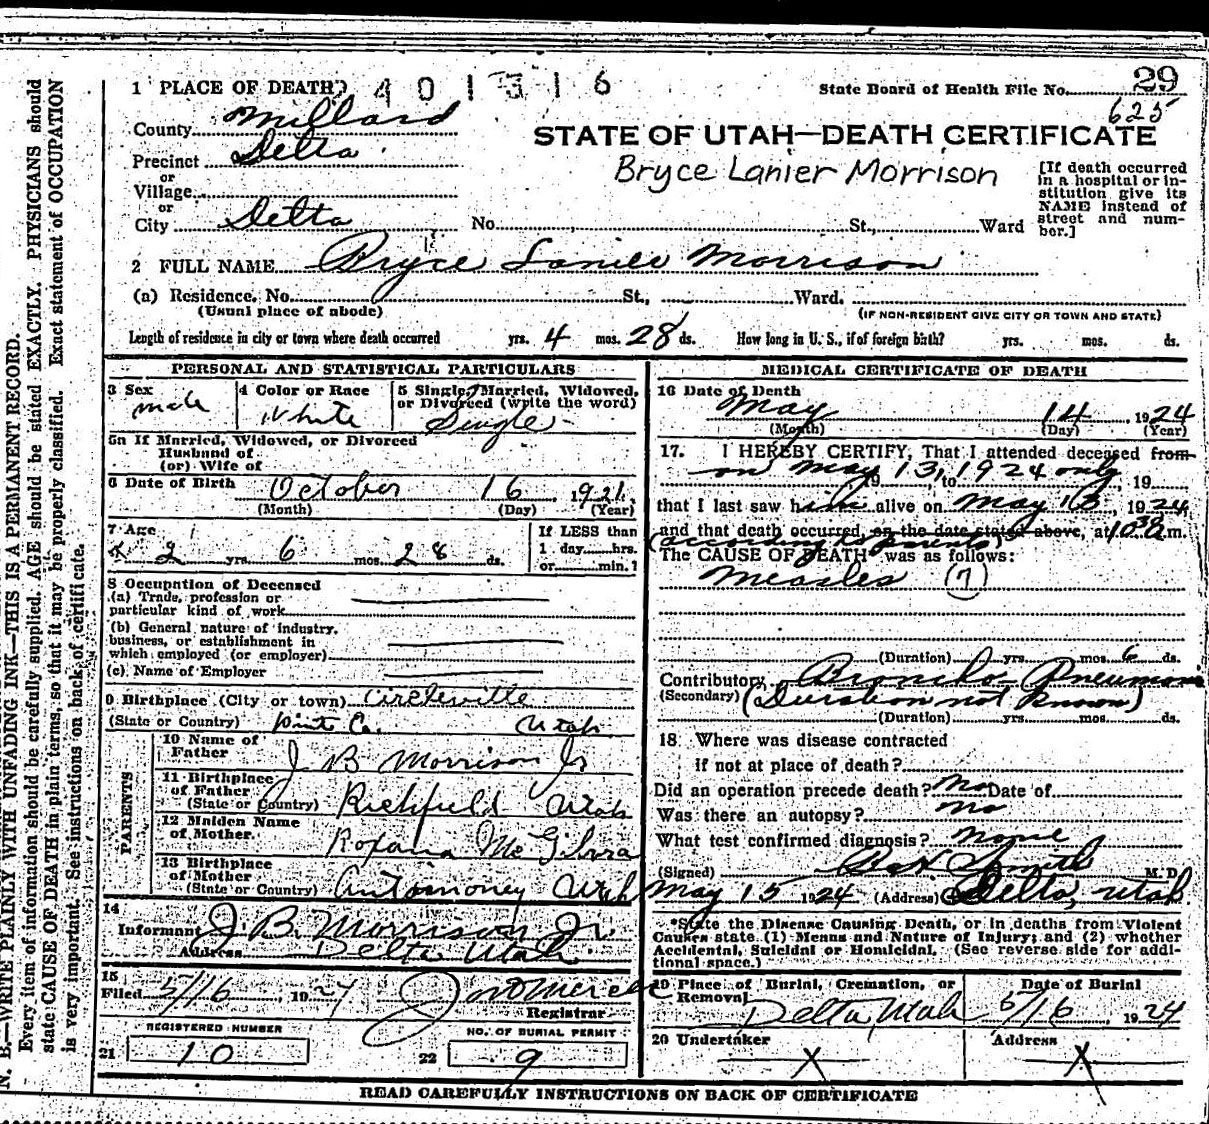 1 PLACE OF DEATH
401316
State Board of Health File No. 29
625
County Millard
STATE OF UTAH—DEATH CERTIFICATE
Precinct Delta
Bryce Lanier Morrison
or
Village
or
City Delta No. St., Ward
[If death occurred
in a hospital or in-
stitution give its
NAME instead of
street and num-
ber.]
2 FULL NAME Bryce Lanier Morrison
(a) Residence. No. St., Ward.
(Usual place of abode) (IF NON-RESIDENT GIVE CITY OR TOWN AND STATE)
Length of residence in city or town where death occurred yrs. 4 mos. 28 ds. How long in U. S., if of foreign birth? yrs. mos. ds.
PERSONAL AND STATISTICAL PARTICULARS
3 Sex
male
4 Color or Race
White
5 Single, Married, Widowed,
or Divorced (write the word)
Single
5a If Married, Widowed, or Divorced
Husband of
(or) Wife of
6 Date of Birth October 16, 1921
(Month) (Day) (Year)
7 Age
2 yrs. 6 mos. 28 ds.
If LESS than
1 day hrs.
or min.?
8 Occupation of Deceased
(a) Trade, profession or
particular kind of work
(b) General nature of industry,
business, or establishment in
which employed (or employer)
(c) Name of Employer
9 Birthplace (City or town) Circleville
(State or Country) Piute Co. Utah
PARENTS
10 Name of
Father J B Morrison Jr
11 Birthplace
of Father
(State or Country) Richfield Utah
12 Maiden Name
of Mother Roxania McGibra
13 Birthplace
of Mother
(State or Country) Utah
14
Informant J. B. Morrison Jr.
Address Delta Utah
15
Filed 5/16 1924
Registrar
REGISTERED NUMBER
21 10
NO. OF BURIAL PERMIT
22 9
MEDICAL CERTIFICATE OF DEATH
16 Date of Death
May 14, 1924
(Month) (Day) (Year)
17. I HEREBY CERTIFY, That I attended deceased from
on May 13, 1924 only
19 , to , 19
that I last saw him alive on May 13, 1924
and that death occurred, on the date stated above, at 10 30 a.m.
(according to parents)
The CAUSE OF DEATH was as follows:
Measles (7)
(Duration) yrs. mos. 6 ds.
Contributory Broncho Pneumonia
(Secondary) (Duration not known)
(Duration) yrs. mos. ds.
18 Where was disease contracted
if not at place of death?
Did an operation precede death? No Date of
Was there an autopsy? no
What test confirmed diagnosis? none
(Signed) Smith M. D.
May 15 1924 (Address) Delta, Utah
*State the Disease Causing Death, or in deaths from Violent
Causes state (1) Means and Nature of Injury; and (2) whether
Accidental, Suicidal or Homicidal. (See reverse side for addi-
tional space.)
19 Place of Burial, Cremation, or
Removal
Delta, Utah
Date of Burial
5/16, 1924
20 Undertaker
X
Address
X
READ CAREFULLY INSTRUCTIONS ON BACK OF CERTIFICATE
N. B.—WRITE PLAINLY WITH UNFADING INK—THIS IS A PERMANENT RECORD.
Every item of information should be carefully supplied. AGE should be stated EXACTLY. PHYSICIANS should
state CAUSE OF DEATH in plain terms, so that it may be properly classified. Exact statement of OCCUPATION
is very important. See instructions on back of certificate.